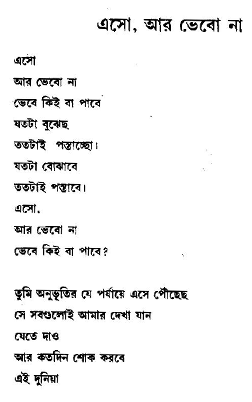 এসো, আর ভেবো না
এসো
আর ভেবো না
ভেবে কিই বা পাবে
যতটা বুঝেছ
ততটাই পস্তাচ্ছো।
যতটা বোঝাবে
ততটাই পস্তাবে।
এসো,
আর ভেবো না
ভেবে কিই বা পাবে?
তুমি অনুভূতির যে পর্যায়ে এসে পৌঁছেছ
সে সবগুলোই আমার দেখা যান
যেতে দাও
আর কতদিন শোক করবে
এই দুনিয়া